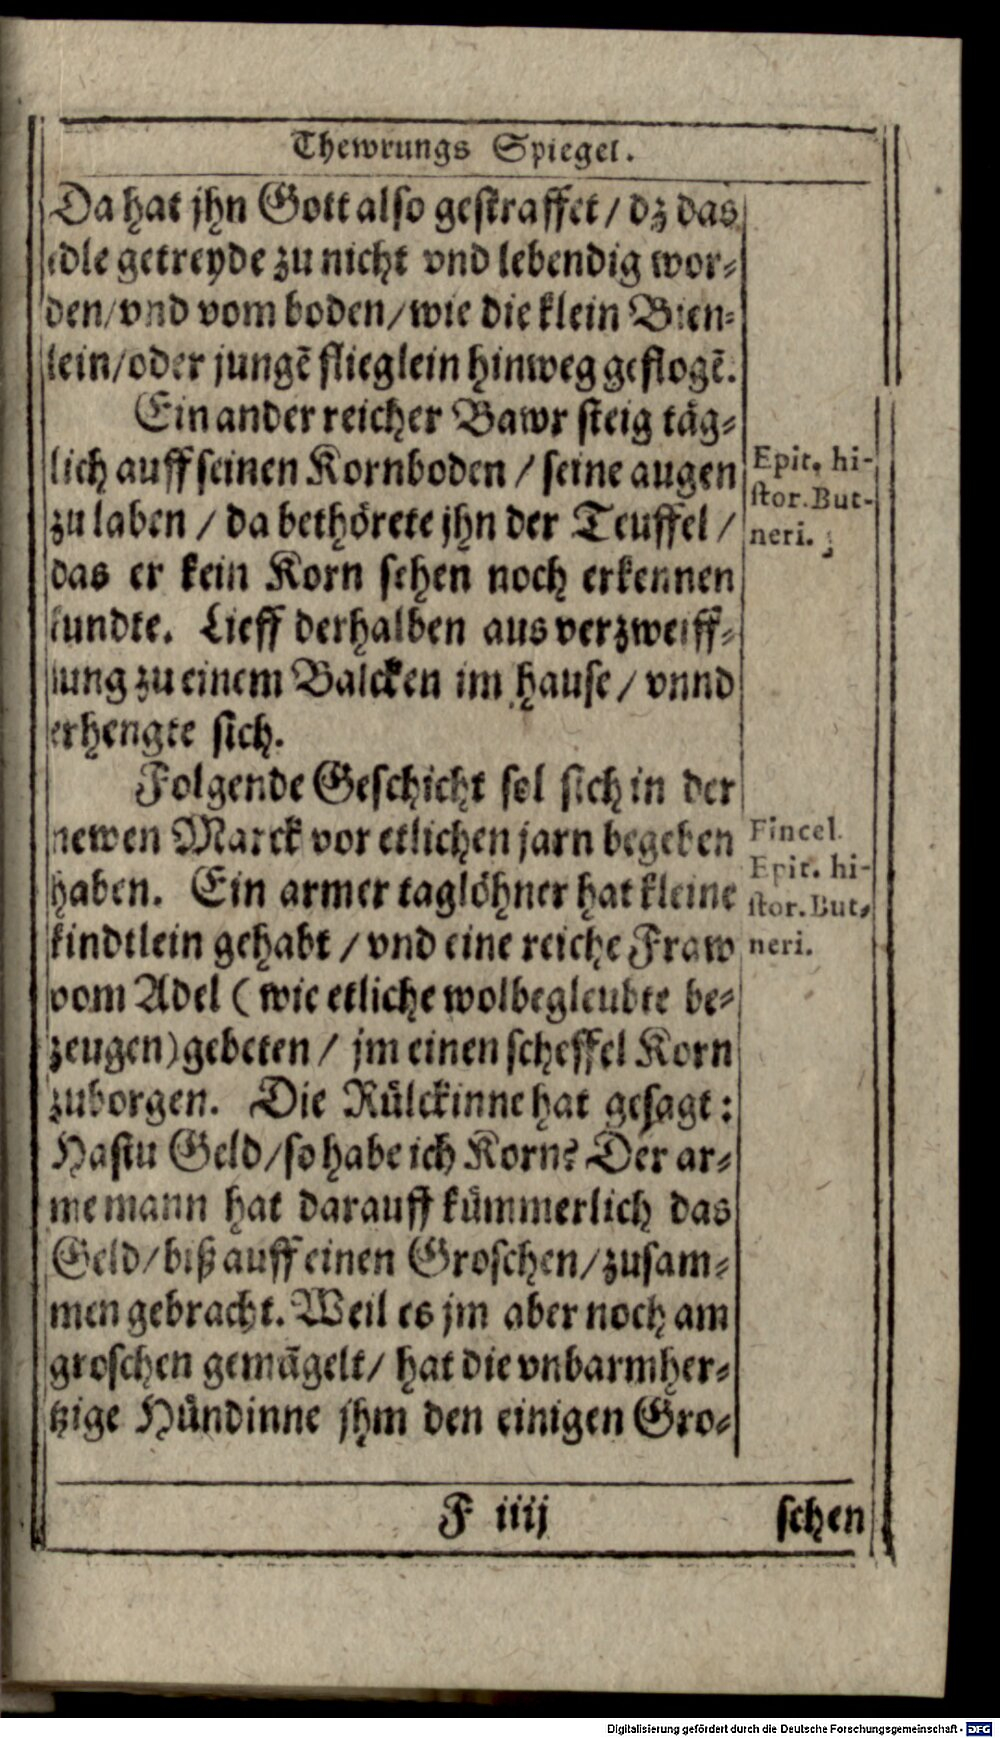 Thewrungs Spiegel.
Da hat jhn Gott also gestraffet / dz das
edle getreyde zu nicht vnd lebendig wor-
den/vnd vom boden/wie die klein Bien-
lein/oder jungē flieglein hinweg geflogē.
Ein ander reicher Bawr steig täg-
lich auff seinen Kornboden / seine augen
zu laben / da bethörete jhn der Teuffel /
das er kein Korn sehen noch erkennen
kundte. Lieff derhalben aus verzweiff-
lung zu einem Balcken im hause / vnnd
erhengte sich.
Epit. hi-
stor. But-
neri.
Folgende Geschicht sol sich in der
newen Marck vor etlichen jarn begeben
haben. Ein armer taglöhner hat kleine
kindtlein gehabt / vnd eine reiche Fraw
vom Adel ( wie etliche wolbegleubte be-
zeugen) gebeten / jm einen scheffel Korn
zuborgen. Die Rülckinne hat gesagt:
Hastu Geld/so habe ich Korn? Der ar-
me mann hat darauff kümmerlich das
Geld/biß auff einen Groschen/zusam-
men gebracht. Weil es jm aber noch am
groschen gemāgelt/ hat die vnbarmher-
tzige Hündinne jhm den einigen Gro-
Fincel.
Epit. hi-
stor. But-
neri.
F iiij
schen
Digitalisierung gefördert durch die Deutsche Forschungsgemeinschaft - DFG